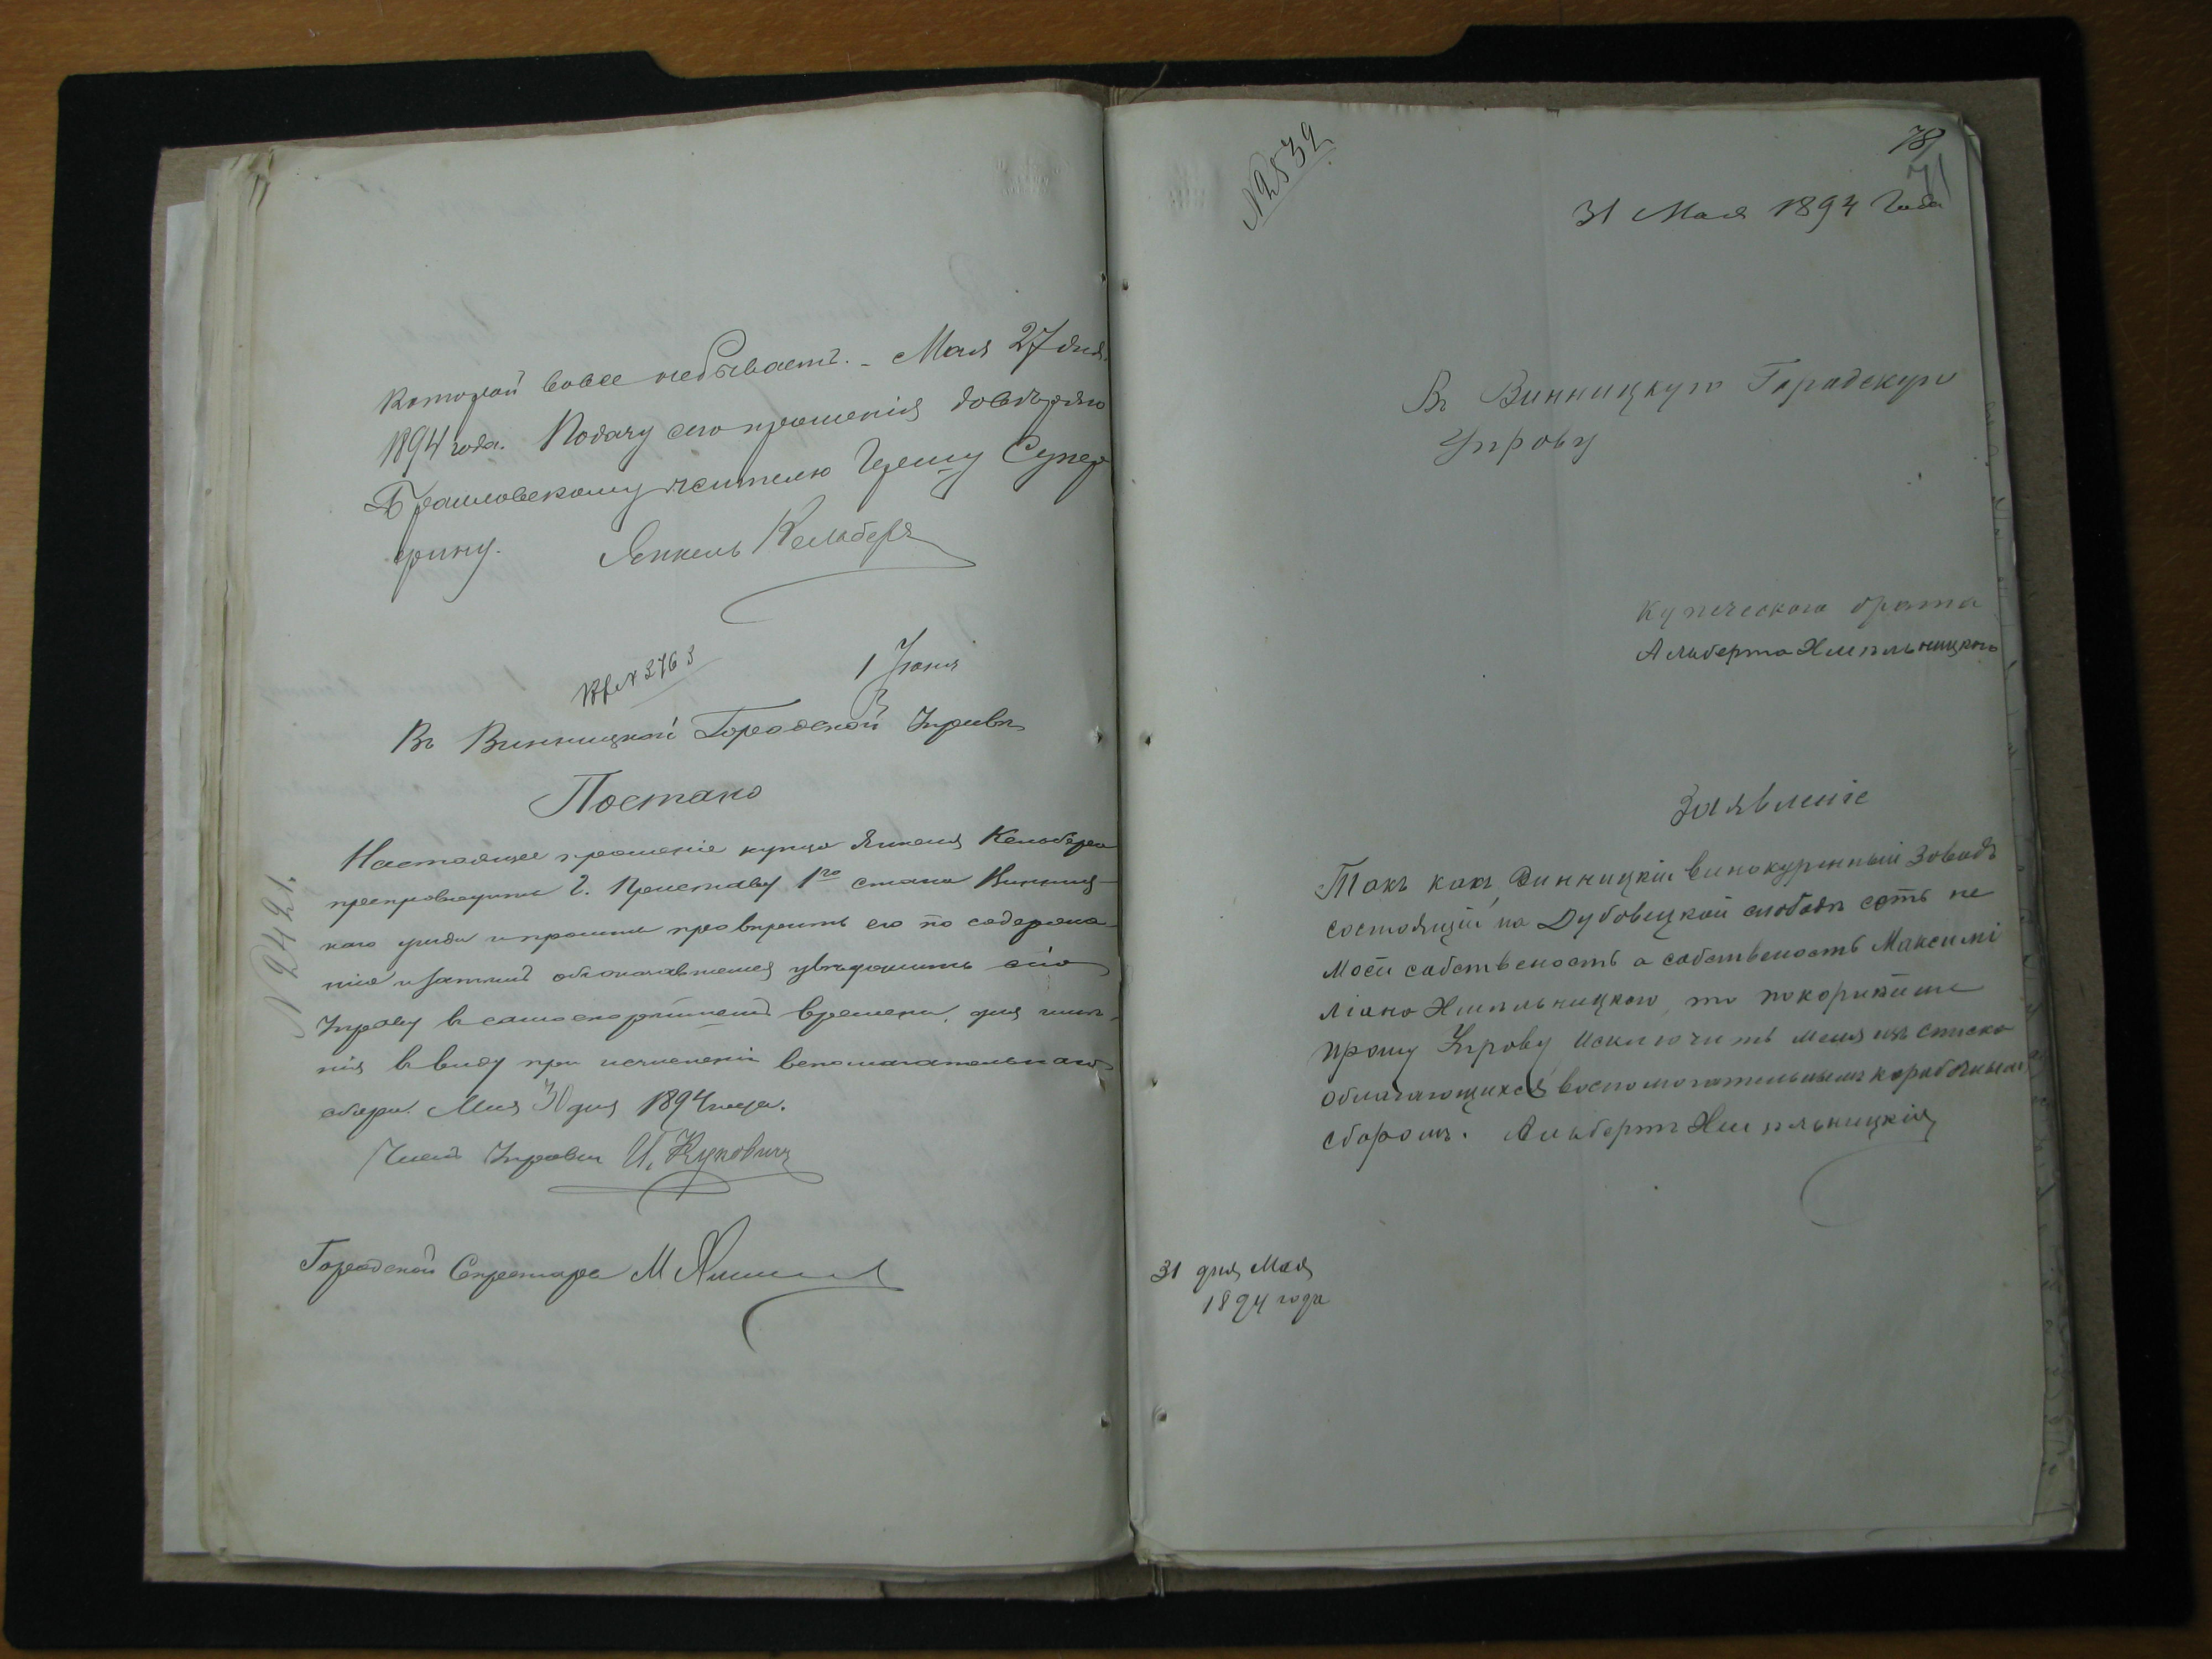 которой вовсе небываетъ. - Мая 27 дня
1894 года. Подачу сего прошенія довѣряю
Браиловскому жителю Герешу Супер
фину. Янкель Кельберъ
№ 3763
1 Іюня
Въ Винницкой Городской Управѣ
Постано
Настоящее прошеніе купца Янкеля Кельбера
препроводить Г. Приставу 1го стана Винниц-
каго уѣзда и просить провѣрить его по содержа-
нію и затѣмъ объ оказавшемся увѣдомить сію
Управу въ самоскорѣйшемъ времени, для имѣ-
нія въ виду при исчисленіи вспомогательнаго
сбора. Мая 30 дня 1894 года.
№ 2421.
Членъ Управы И.
Городской Секретарь М
№ 2532
78
71
31 Мая 1894 Года
Въ Винницкую Городскую
Упрову
Купеческого брата
Альберта Хмѣльницкого
Заявленіе
Такъ какъ Винницкій винокуренный Заводъ
состоящій на Дубовецкой слободѣ есть не
моей собственость а собственость Максимі
ліана Хмѣльницкого, то покорнѣйше
прошу Упрову исключить меня изъ списка
облагающихся воспомогательнымъ коробочнымъ
сборомъ. Альбертъ Хмѣльницкій
31 дня Мая
1894 года